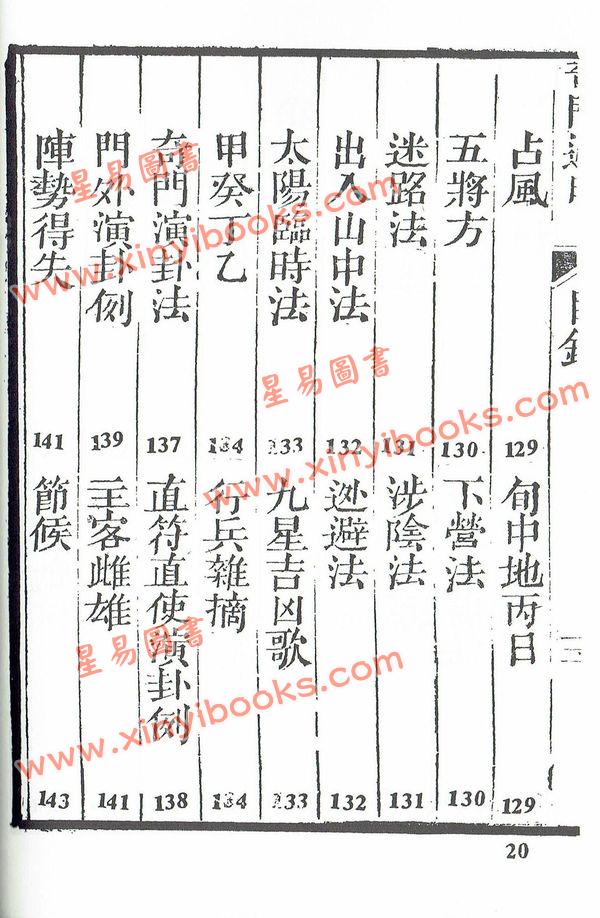 目錄
占風 129
旬中地丙日 129
五將方 130
下營法 130
迷路法 131
涉險法 131
出入山中法 132
迯避法 132
太陽臨時法 133
九星吉凶歌 133
甲癸丁乙 134
行兵雜摘 134
奇門演卦法 137
直符直使演卦例 138
門外演卦例 139
主客雌雄 141
陣勢得失 141
節候 143
20
星易圖書
www.xinyibooks.com
星易圖書
www.xinyibooks.com
星易圖書
www.xinyibooks.com